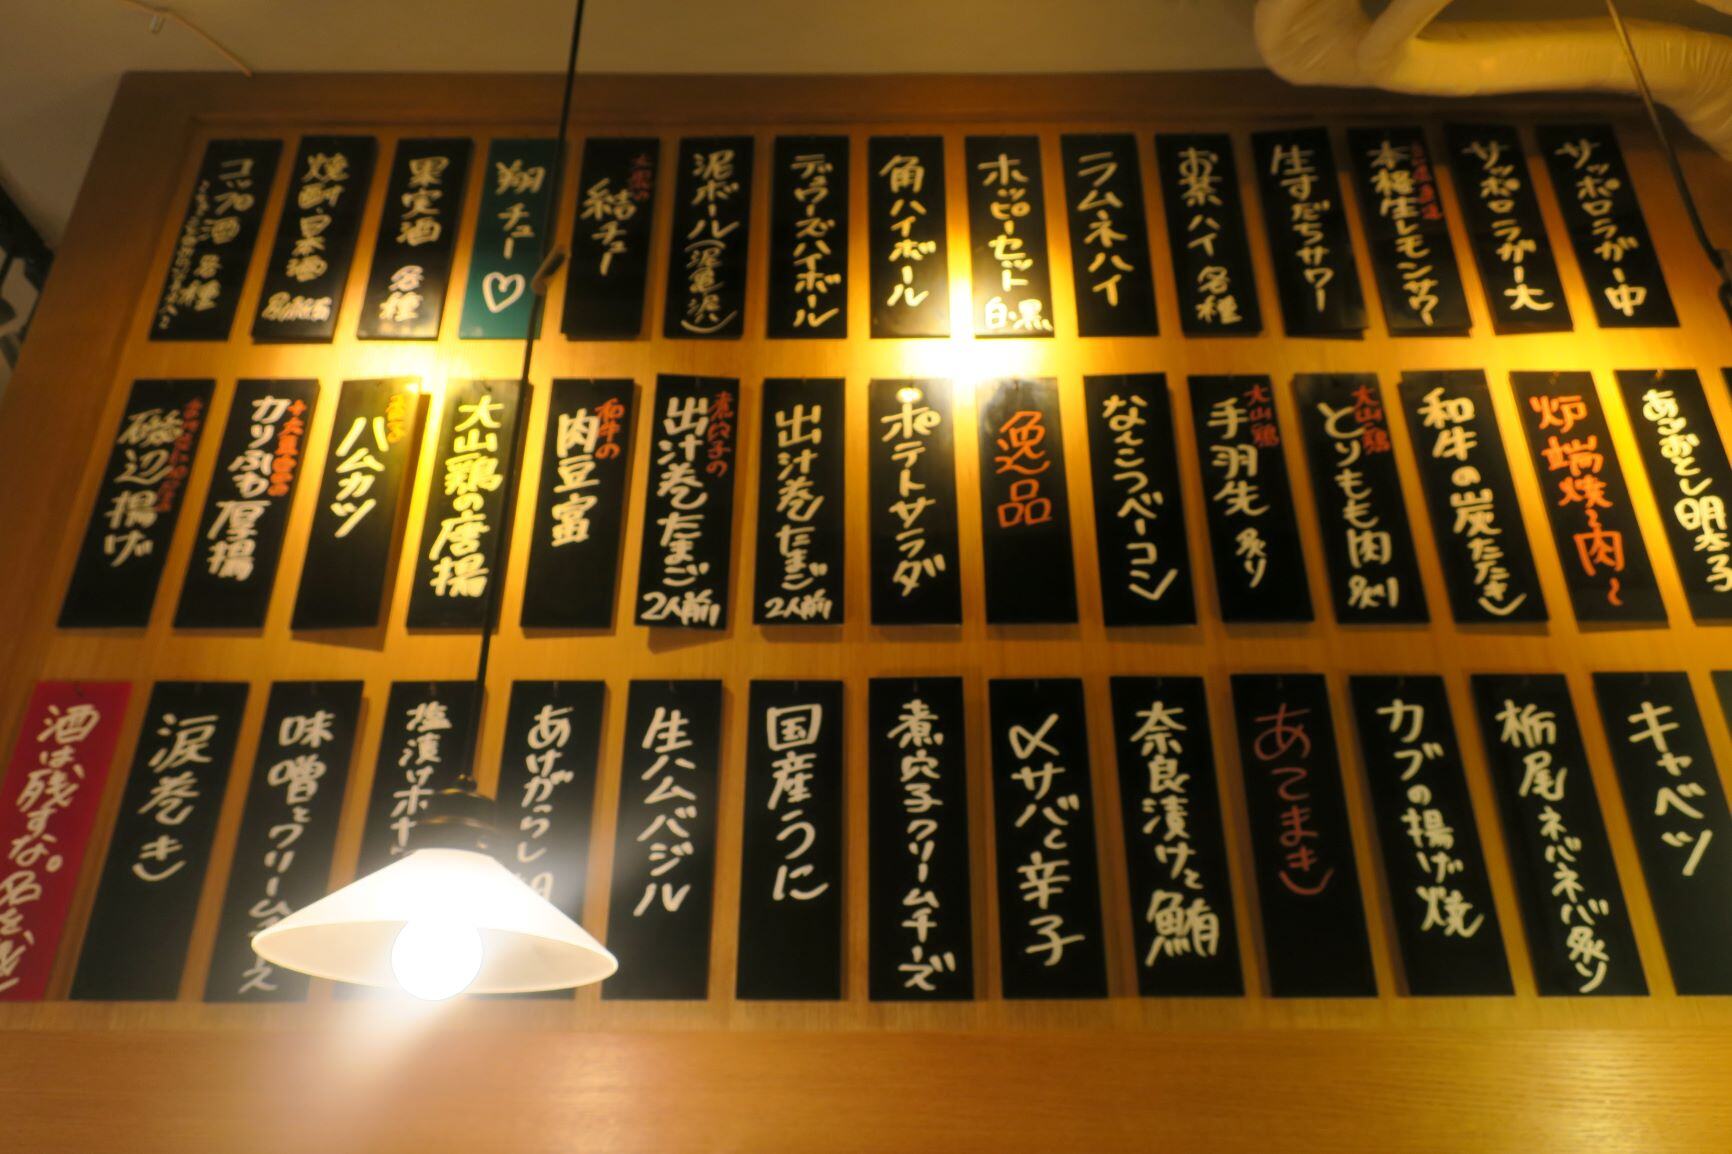 サッポロラガー中
サッポロラガー大
本格生レモンサワー
生すだちサワー
お茶ハイ 各種
ラムネハイ
ホッピーセット 白・黒
角ハイボール
デュワーズハイボール
泥ボール(泥亀沢)
結チュー
翔チュー♡
果実酒 各種
焼酎 日本酒 各種
コップ酒 各種
あごおとし明太子
炉端焼~肉~
和牛の炭たたき
大山鶏
とりもも肉炙り
大山鶏
手羽先 炙り
なんこつベーコン
逸品
ポテトサラダ
出汁巻たまご 2人前
煮穴子の
出汁巻たまご 2人前
和牛の
肉豆富
大山鶏の唐揚
ハムカツ
カリふわ厚揚
磯辺揚げ
キャベツ
栃尾ネバネバ炙り
カブの揚げ焼
あてまき
奈良漬けと鮪
〆サバと辛子
煮穴子クリームチーズ
国産うに
生ハムバジル
あけがらし
塩漬けホヤ
味噌とクリーム
涙巻き
酒は残すな。名を残せ